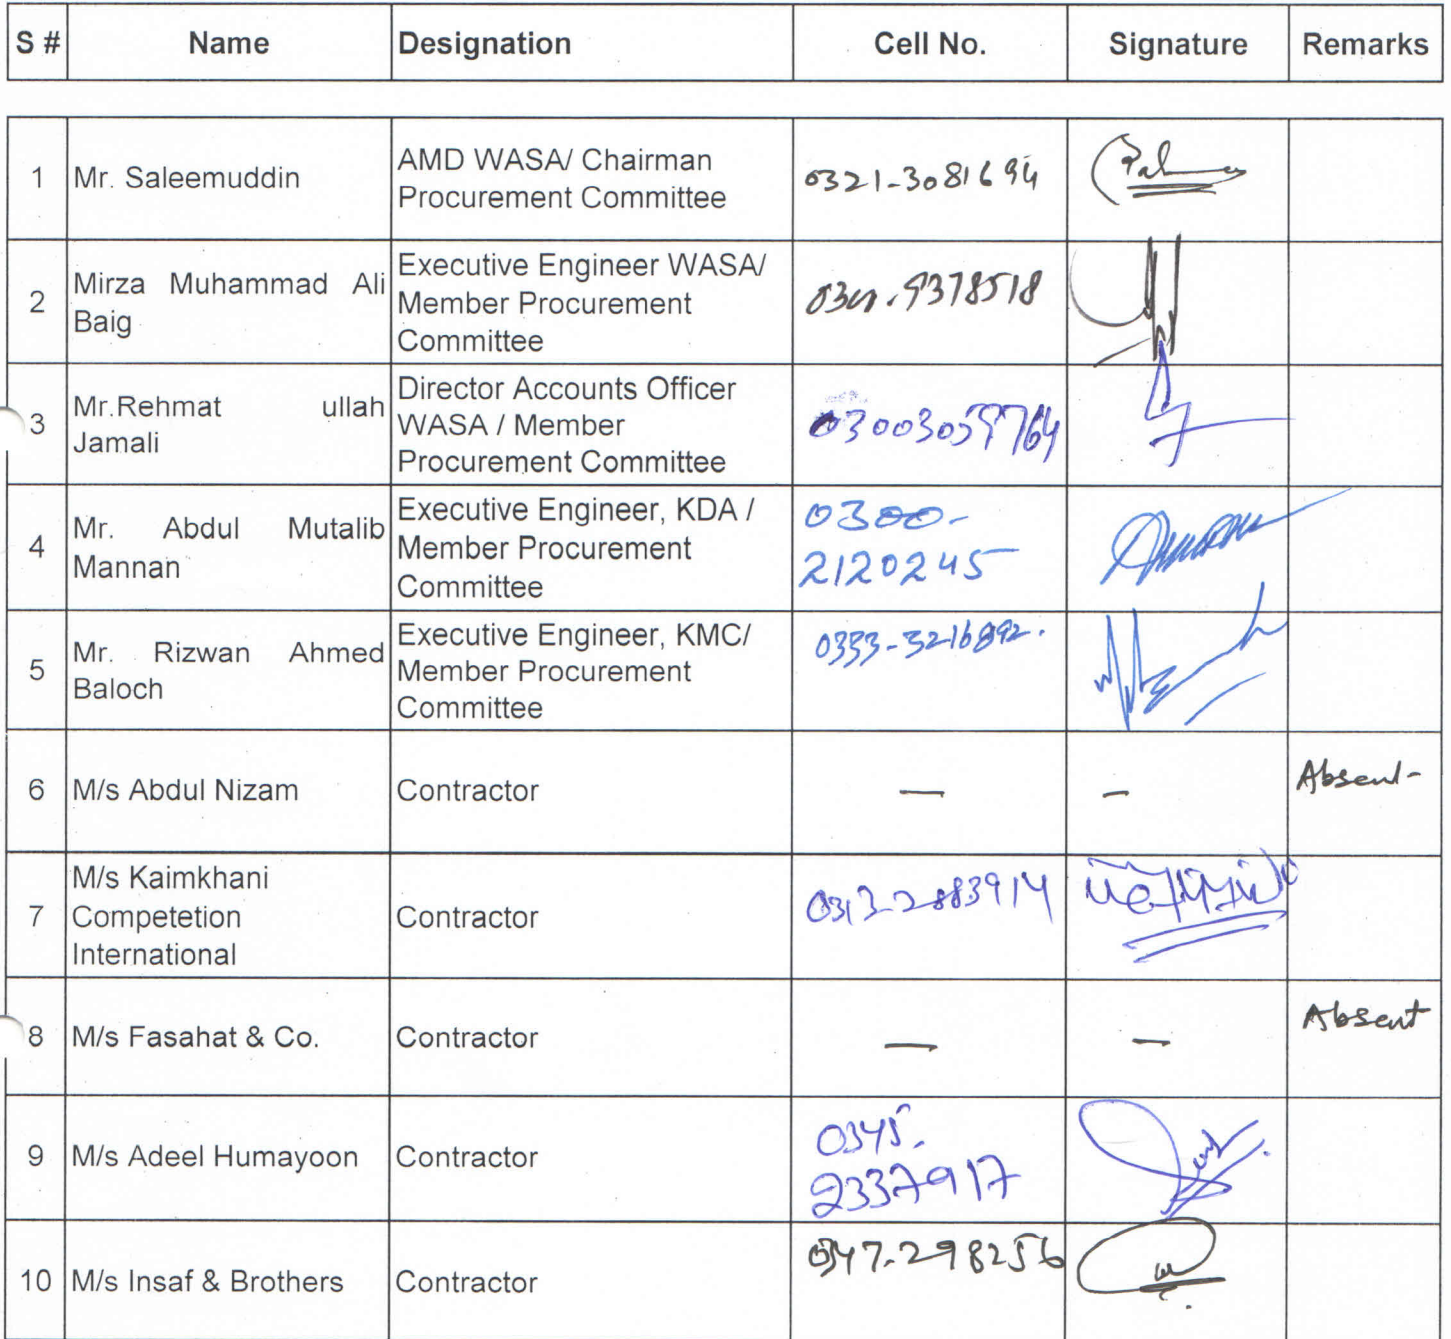 S # Name Designation Cell No. Signature Remarks
1 Mr. Saleemuddin AMD WASA/ Chairman
Procurement Committee 0321-3081694
2 Mirza Muhammad Ali
Baig Executive Engineer WASA/
Member Procurement
Committee
3 Mr.Rehmat ullah
Jamali Director Accounts Officer
WASA / Member
Procurement Committee
4 Mr. Abdul Mutalib
Mannan Executive Engineer, KDA /
Member Procurement
Committee 0300-
2120245
5 Mr. Rizwan Ahmed
Baloch Executive Engineer, KMC/
Member Procurement
Committee 0333-3216892.
6 M/s Abdul Nizam Contractor — — Absent-
7 M/s Kaimkhani
Competetion
International Contractor 0313-2883914
8 M/s Fasahat & Co. Contractor — — Absent
9 M/s Adeel Humayoon Contractor 0345.
2337917
10 M/s Insaf & Brothers Contractor 0347-298256